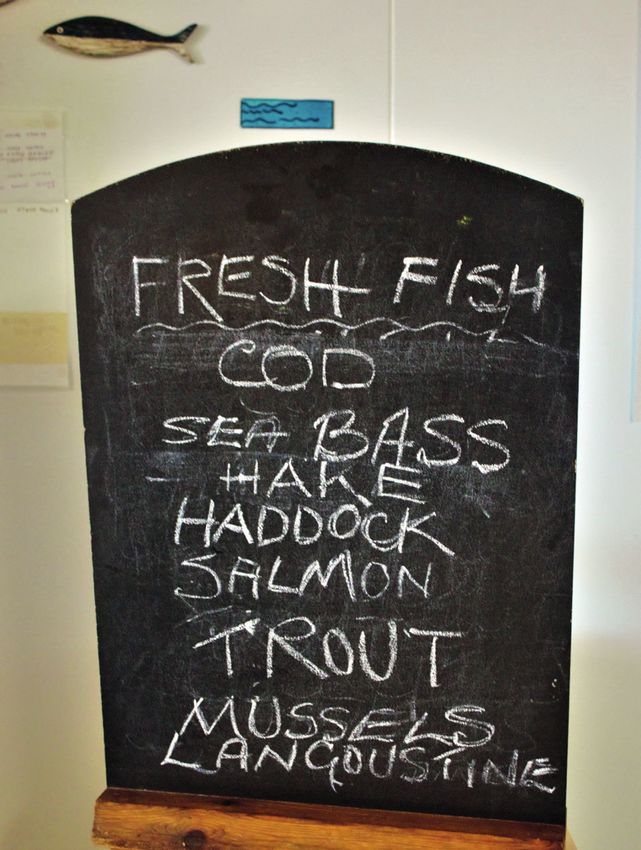 FRESH FISH
COD
SEA BASS
HAKE
HADDOCK
SALMON
TROUT
MUSSELS
LANGOUSTINE